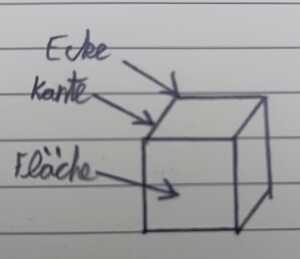 Ecke
Kante
Fläche